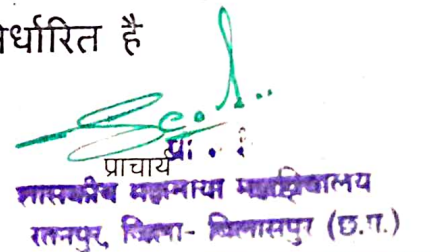 र्धारित है
प्राचार्य
शासकीय महामाया महाविद्यालय
रतनपुर, जिला- बिलासपुर (छ.ग.)